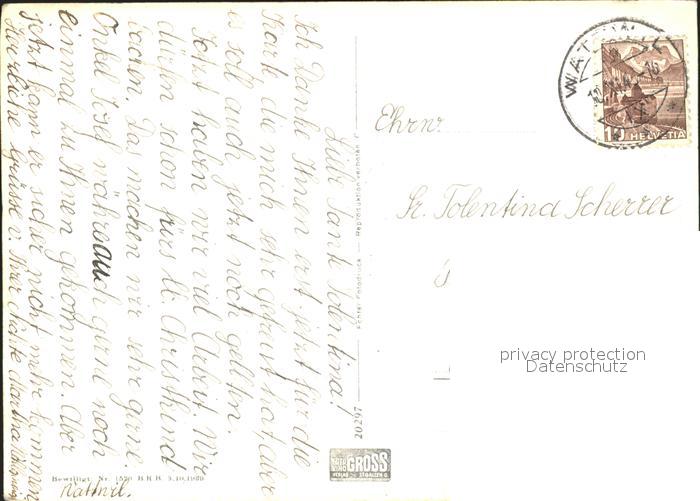 Liebe Tante Tolentina!
Ich Danke Ihnen erst jetzt für die
Karte, die mich sehr gefreut hat, aber
es soll auch jetzt noch gellten.
Jetzt haben wir viel Arbeit. Wir
dürfen schon fürs lb. Christkind
Das machen wir sehr gerne.
Onkel Josef währe auch gerne noch
einmal zu Ihnen gekommen. Aber
jetzt kann er sicher nicht mehr kommen
Herzliche Grüsse v. Ihrer Nichte Martha
Ehrw.
Sr. Tolentina Scherrer
HELVETIA
10
Echter Fotodruck - Reproduktion verboten
20297
GROSS
Bewilligt Nr. 1520 BRB 3.10.1939
privacy protection
Datenschutz